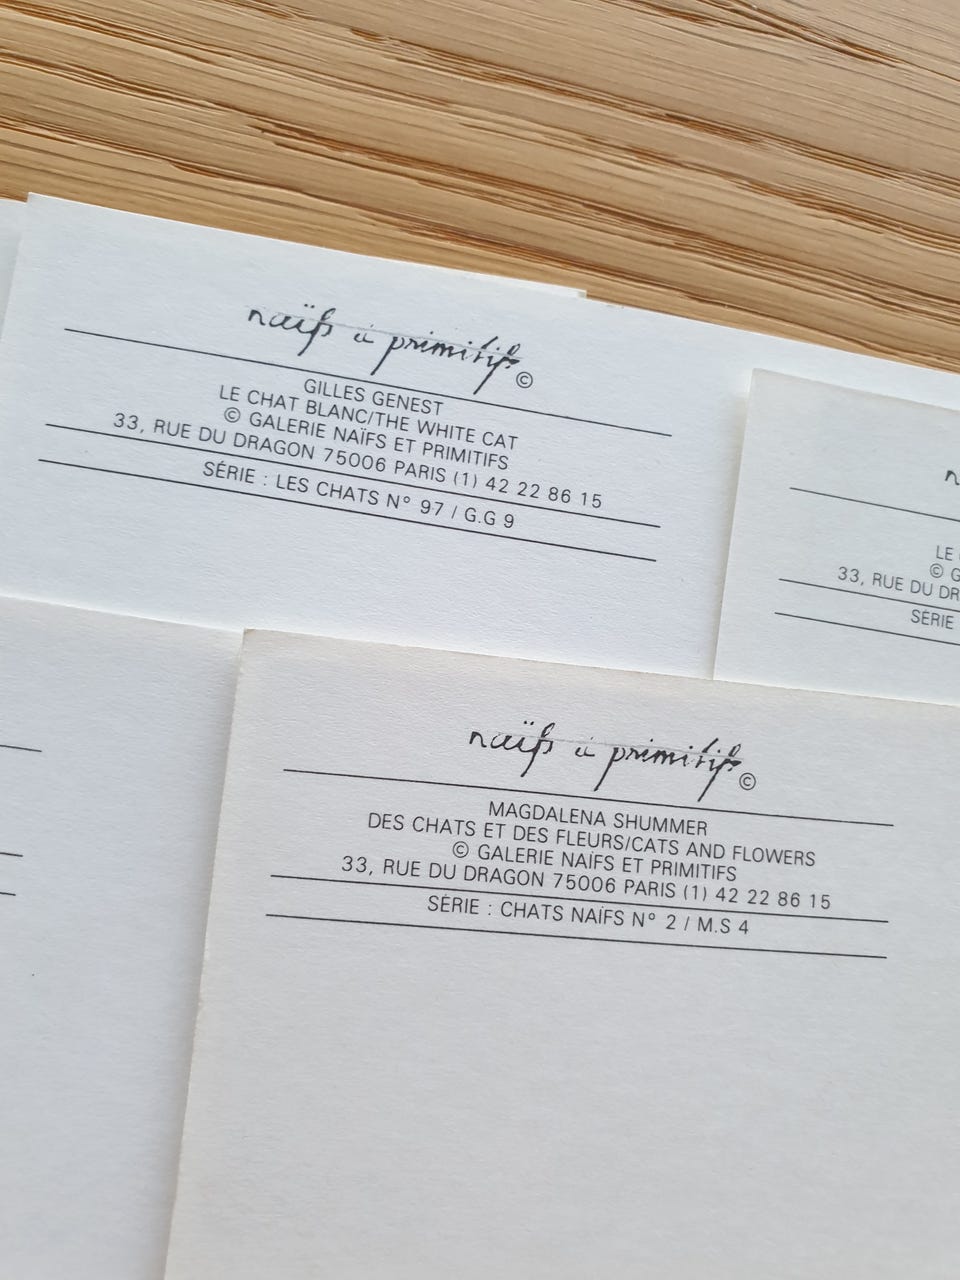 naïfs à primitifs©
GILLES GENEST
LE CHAT BLANC/THE WHITE CAT
© GALERIE NAÏFS ET PRIMITIFS
33, RUE DU DRAGON 75006 PARIS (1) 42 22 86 15
SÉRIE : LES CHATS N° 97 / G.G 9
LE
©
33, RUE DU
SÉRIE
naïfs à primitifs©
MAGDALENA SHUMMER
DES CHATS ET DES FLEURS/CATS AND FLOWERS
© GALERIE NAÏFS ET PRIMITIFS
33, RUE DU DRAGON 75006 PARIS (1) 42 22 86 15
SÉRIE : CHATS NAÏFS N° 2 / M.S 4